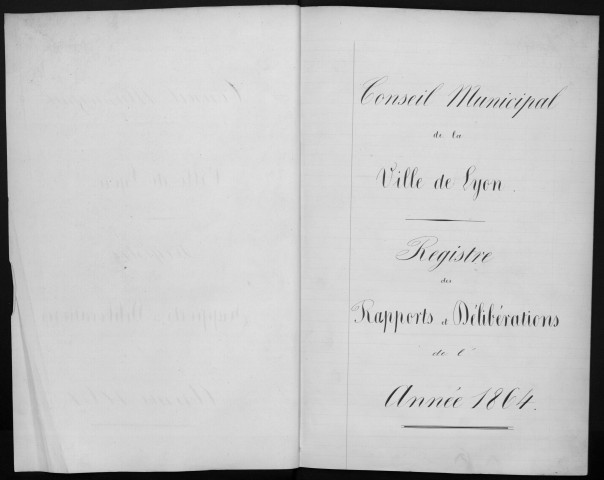 Conseil Municipal
de la
Ville de Lyon.
Registre
des
Rapports et Délibérations
de l'
Année 1864.